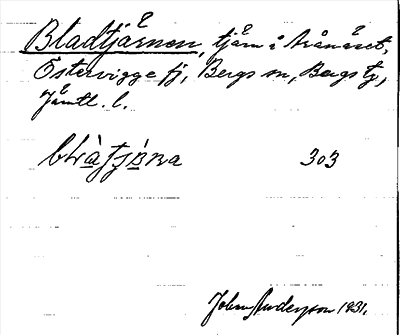 Bladtjärnen, tjärn i Trånäset,
Östervigge fj, Bergs sn, Bergs tg,
Jämtl. l.
303
John Anderson 1931.